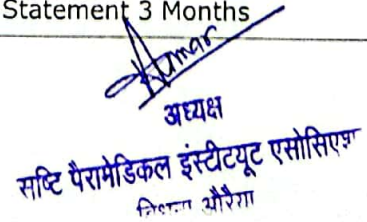 Statement 3 Months
Kumar
अध्यक्ष
सष्टि पैरामेडिकल इंस्टीटयूट एसोसिएशन
औरैया